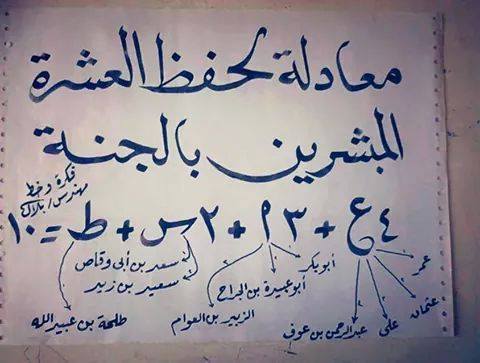 معادلة لحفظ العشرة
المبشرين بالجنة
فكرة وخط
مهندس/ بلال
٤ع + ٣أ + ٢س + ط = ١٠
عمر
عثمان
على
عبدالرحمن بن عوف
أبوبكر
أبوعبيدة بن الجراح
الزبير بن العوام
سعد بن أبى وقاص
سعيد بن زيد
طلحة بن عبيد الله